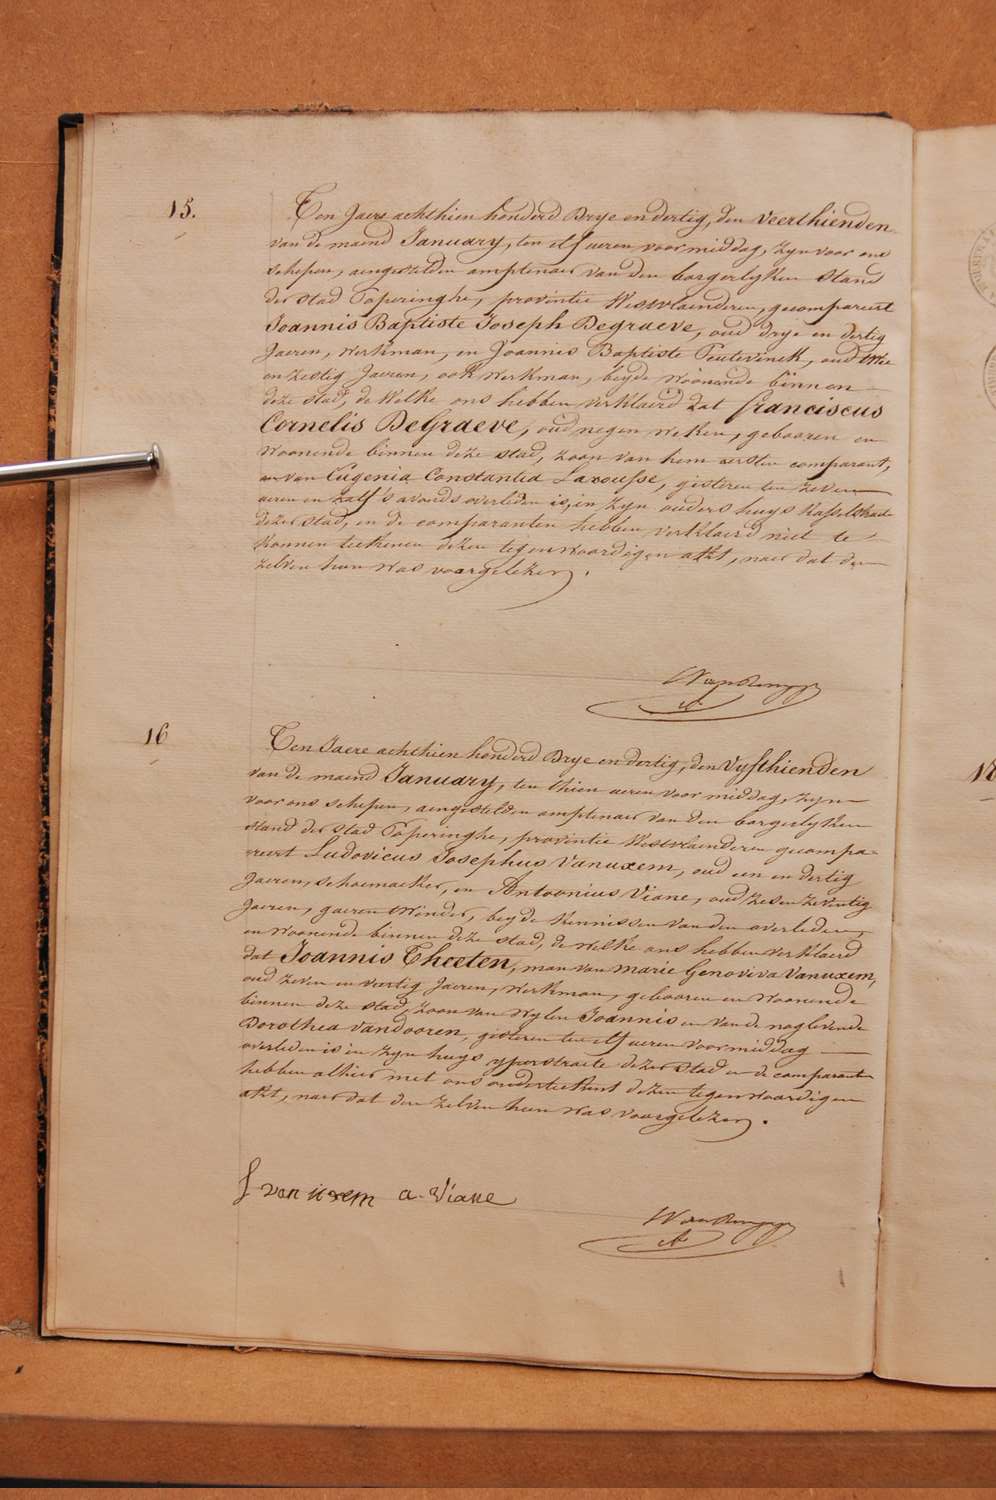 15.
Ten Jaere achthien honderd Drye en dertig, den Veerthienden
van de maend January, ten elf ueren voor middag, zyn voor ons
schepen, aengestelden amptenaer van den borgerlyken Stand
der Stad Poperinghe, provintie Westvlaenderen, gecompareert
Joannis Baptiste Joseph Degraeve, oud drye en dertig
Jaeren, werkman, en Joannis Baptiste Teutevinck, oud twee
en zestig Jaeren, ook werkman, beyde woonende binnen
deze stad, de Welke ons hebben verklaerd dat franciscus
Cornelis DeGraeve, oud negen weken, gebooren en
woonende binnen deze stad, zoon van hem eersten comparant,
en van Eugenia Constantia Larousse, gisteren ten zeven
ueren en half s'avonds overleden is, in zyn ouders huys Kasselstraete
dezer stad, en de comparanten hebben verklaerd niet te
konnen teekenen dezen tegenwoordigen akt, naer dat den
zelven hun was voorgelezen.
16
Ten Jaere achthien honderd Drye en dertig, den Vyfthienden
van de maend January, ten thien ueren voor middag, zyn
voor ons schepen, aengestelden amptenaer van den borgerlyken
stand der Stad Poperinghe, provintie Westvlaenderen gecompa-
reert Ludovicus Josephus Vanuxem, oud een en dertig
Jaeren, schoemaeker, en Antoonius Viane, oud zes en zeventig
Jaeren, gaeren twinder, beyde kennissen van den overleden,
en woonende binnen deze stad, de welke ons hebben verklaerd
dat Joannis Theeten, man van Marie Genoviva Vanuxem,
oud zeven en veertig Jaeren, werkman, gebooren en woonende
binnen deze stad, zoon van wylen Joannis en van de noglevende
Dorothea Vandooren, gisteren ten elf ueren voor middag
overleden is in zyn huys yperstraete dezer stad en de comparanten
hebben alhier met ons onderteekent dezen tegenwoordigen
akt, naer dat den zelven hun was voorgelezen.
van uxem a. Viane